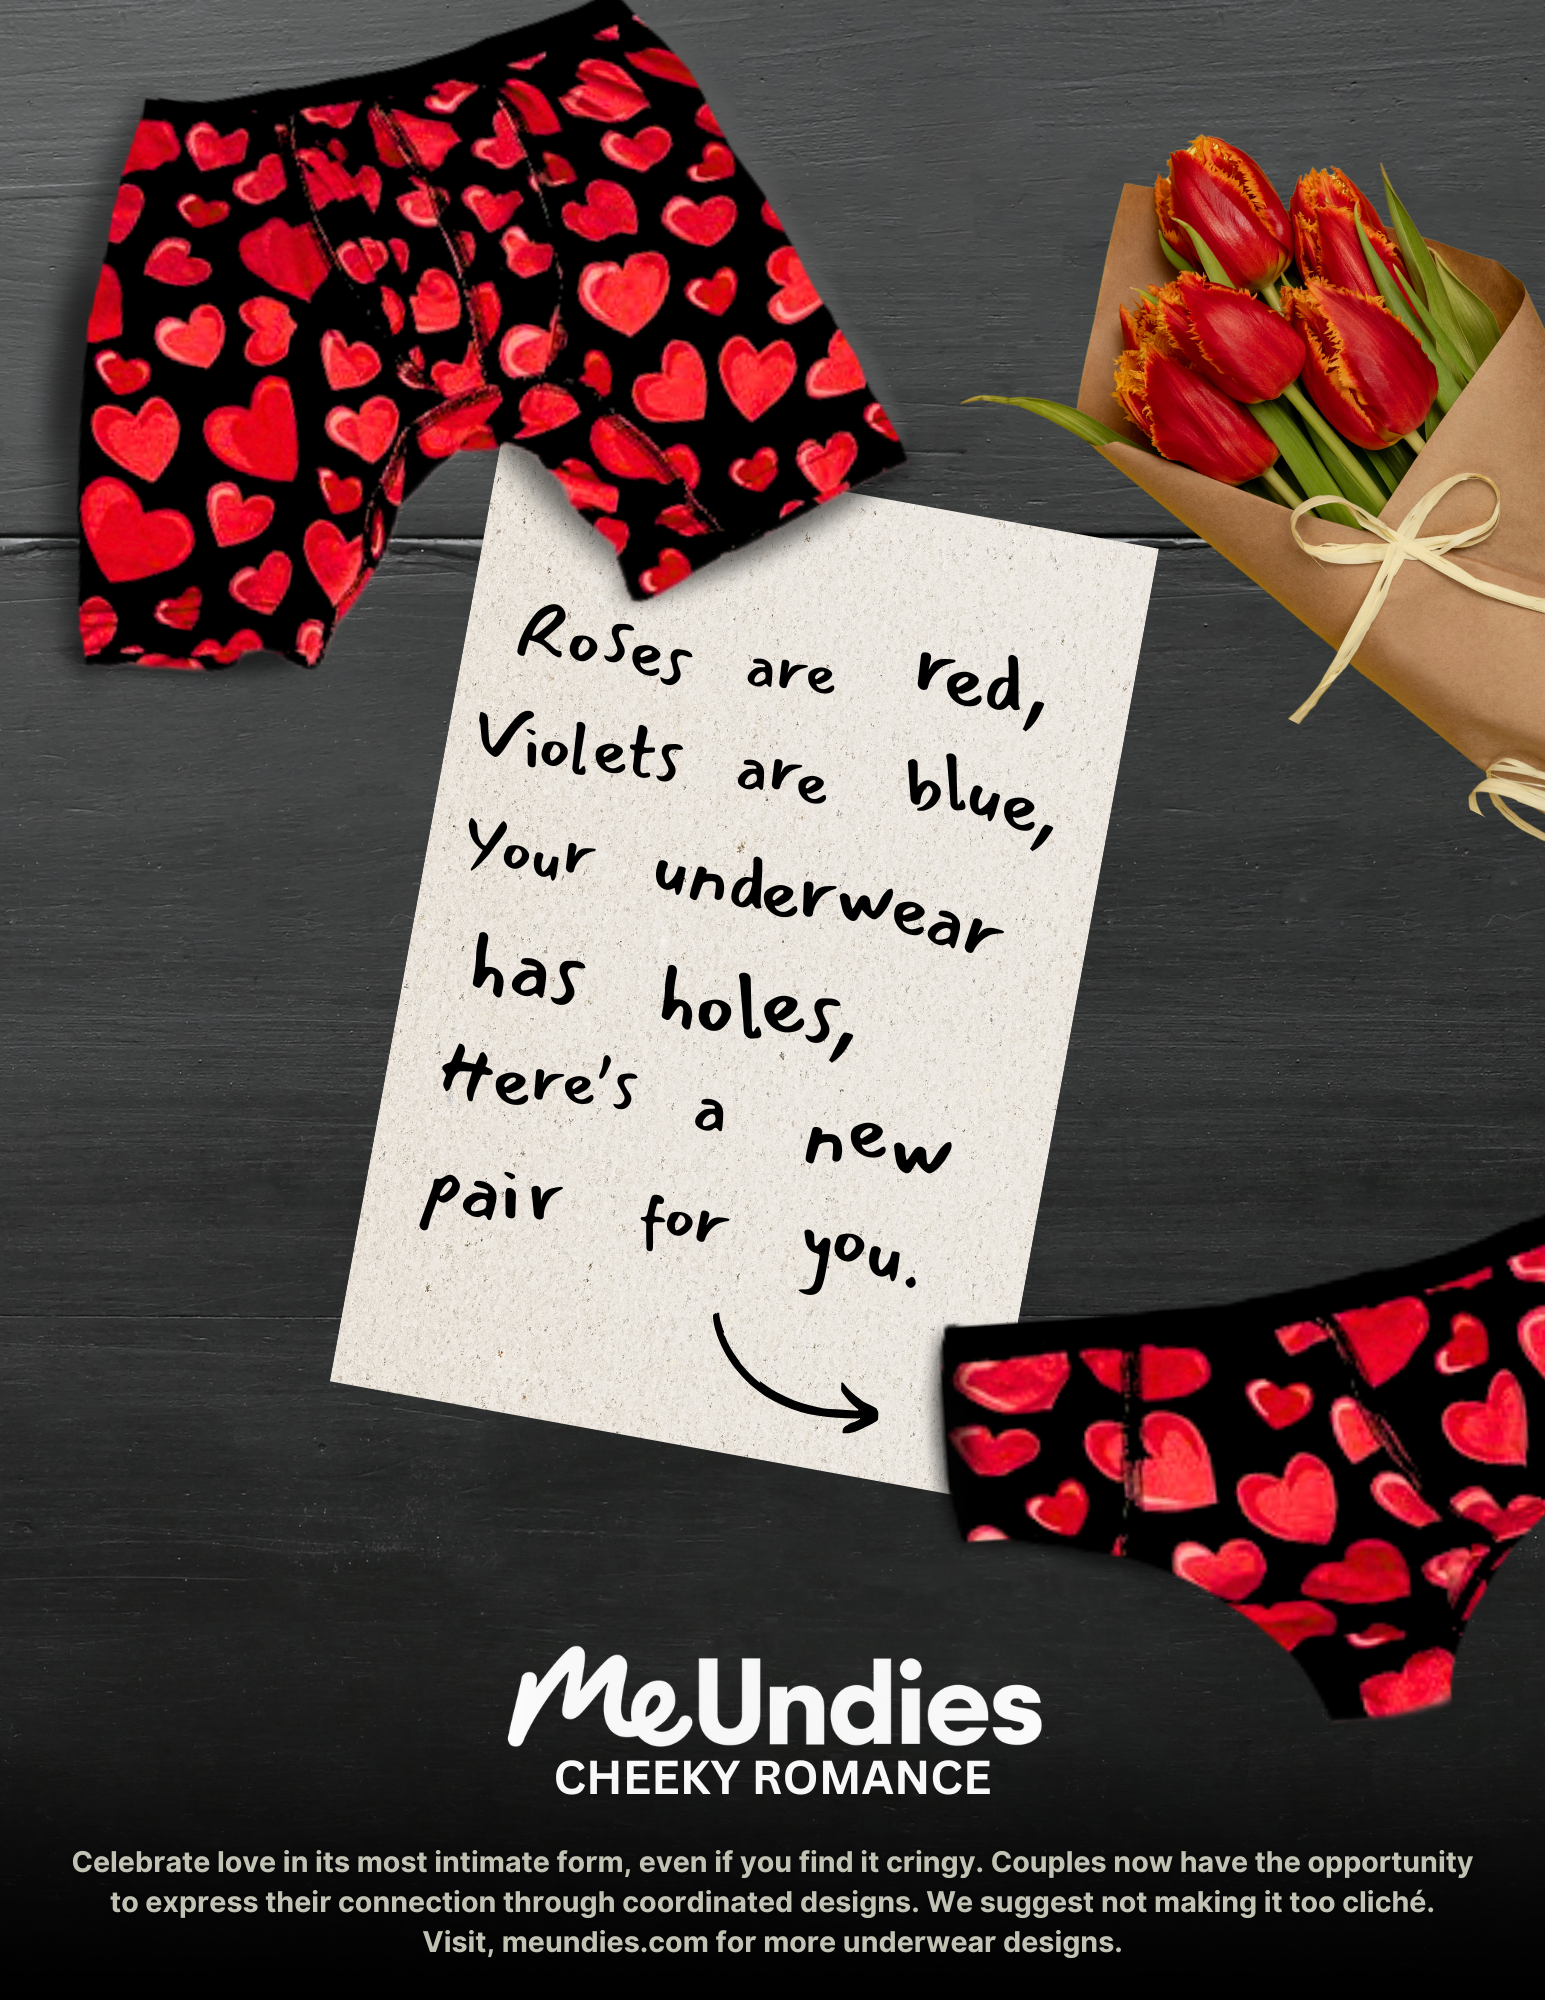 Roses are red,
Violets are blue,
Your underwear
has holes,
Here's a new
pair for you.
MeUndies
CHEEKY ROMANCE
Celebrate love in its most intimate form, even if you find it cringy. Couples now have the opportunity
to express their connection through coordinated designs. We suggest not making it too cliché.
Visit, meundies.com for more underwear designs.